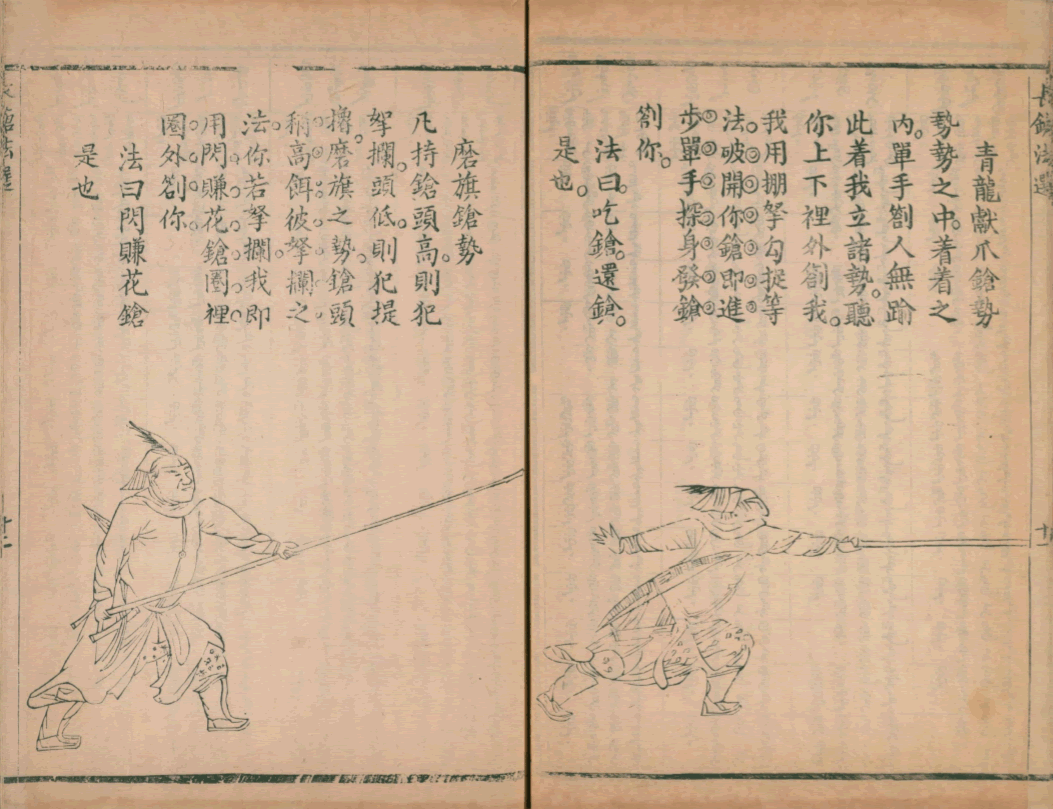 青龍獻爪鎗勢
勢勢之中。着着之
內。單手劄人無踰
此着我立諸勢。聽
你上下裡外劄我。
我用掤拏勾捉等
法。破開你鎗即進
步單手探身發鎗
劄你。
法曰。吃鎗。還鎗。
是也。
十一
磨旗鎗勢
凡持鎗頭高。則犯
拏攔。頭低。則犯提
擼。磨旗之勢。鎗頭
稍高餌彼拏攔之
法。你若拏攔我即
用閃賺花鎗圈裡
圈外劄你。
法曰閃賺花鎗
是也
十二